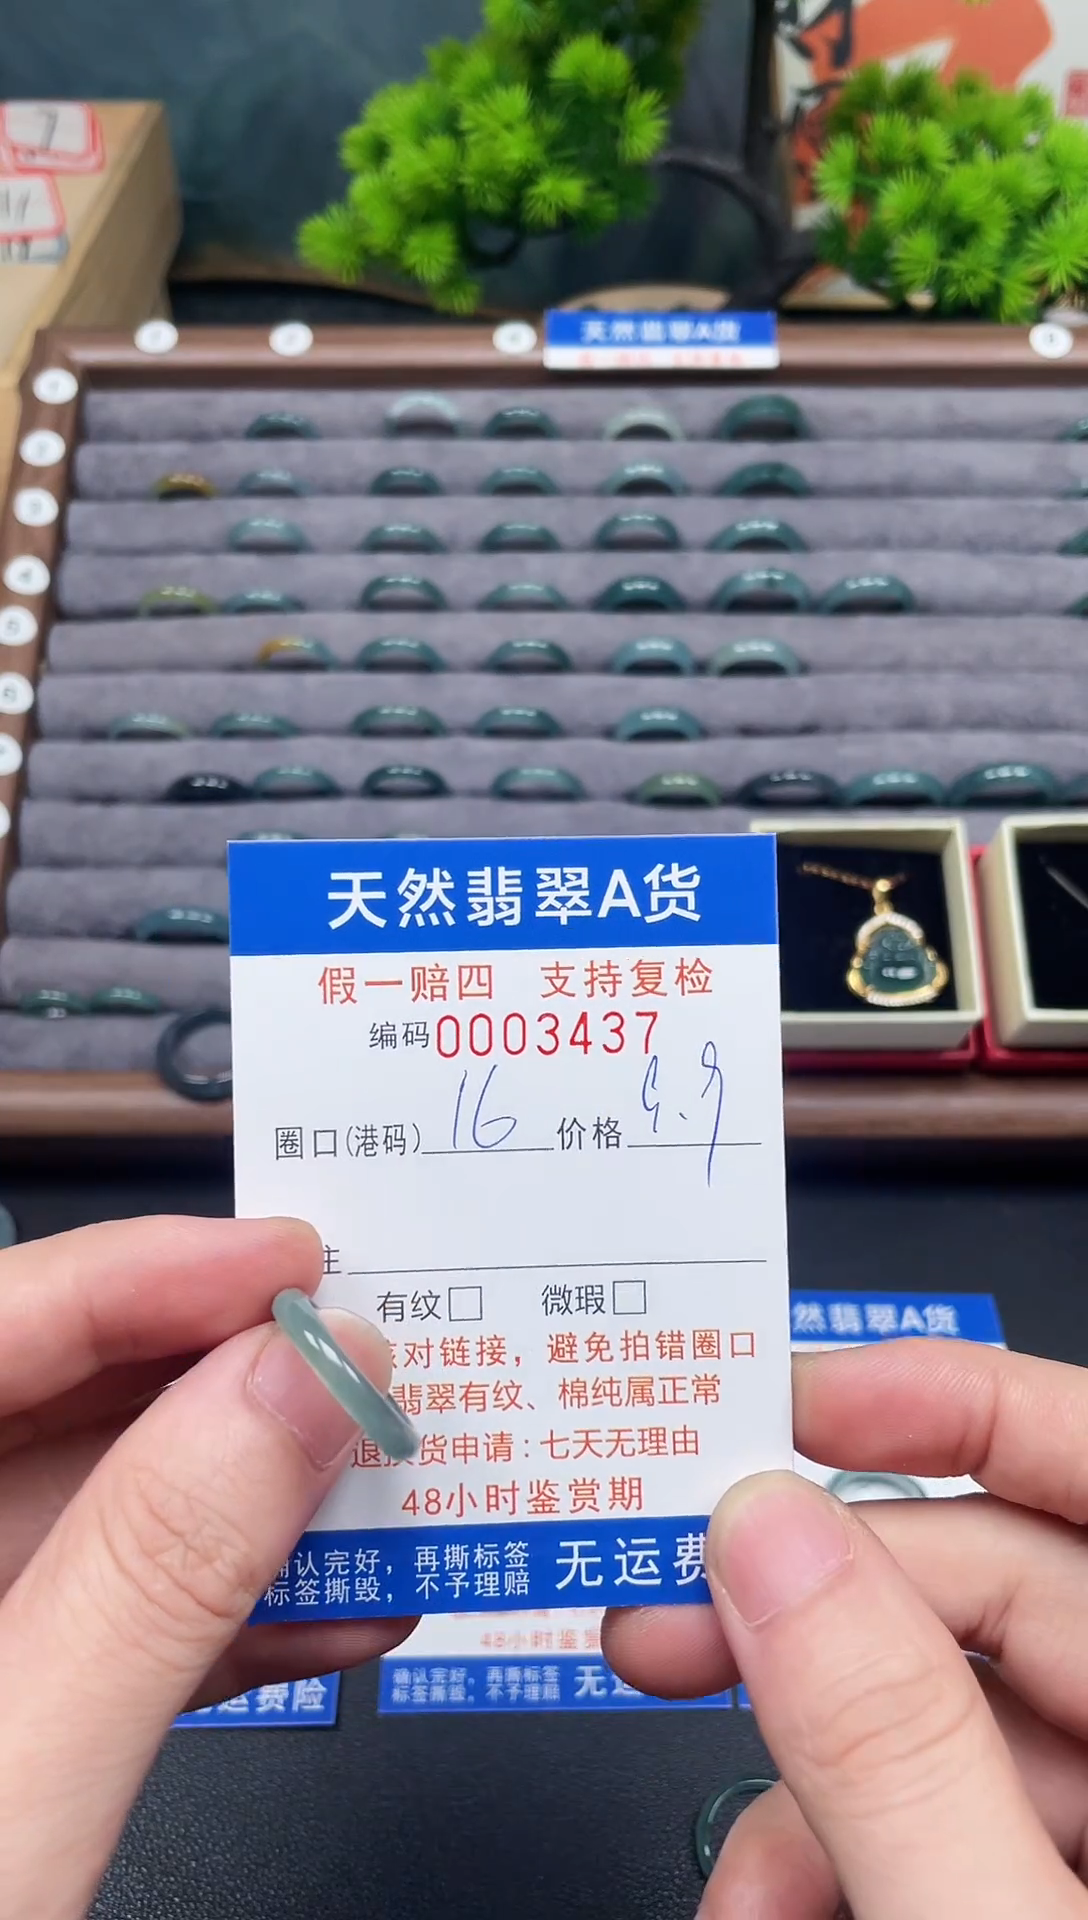 天然翡翠A货
天然翡翠A货
假一赔四 支持复检
编码0003437
圈口(港码) 16 价格
有纹□ 微瑕□
对链接，避免拍错圈口
翡翠有纹、棉纯属正常
退换货申请：七天无理由
48小时鉴赏期
确认完好，再撕标签
标签撕毁，不予理赔
无运费
然翡翠A货
48小时鉴赏
确认完好，再撕标签
标签撕毁，不予理赔
无运
运费险